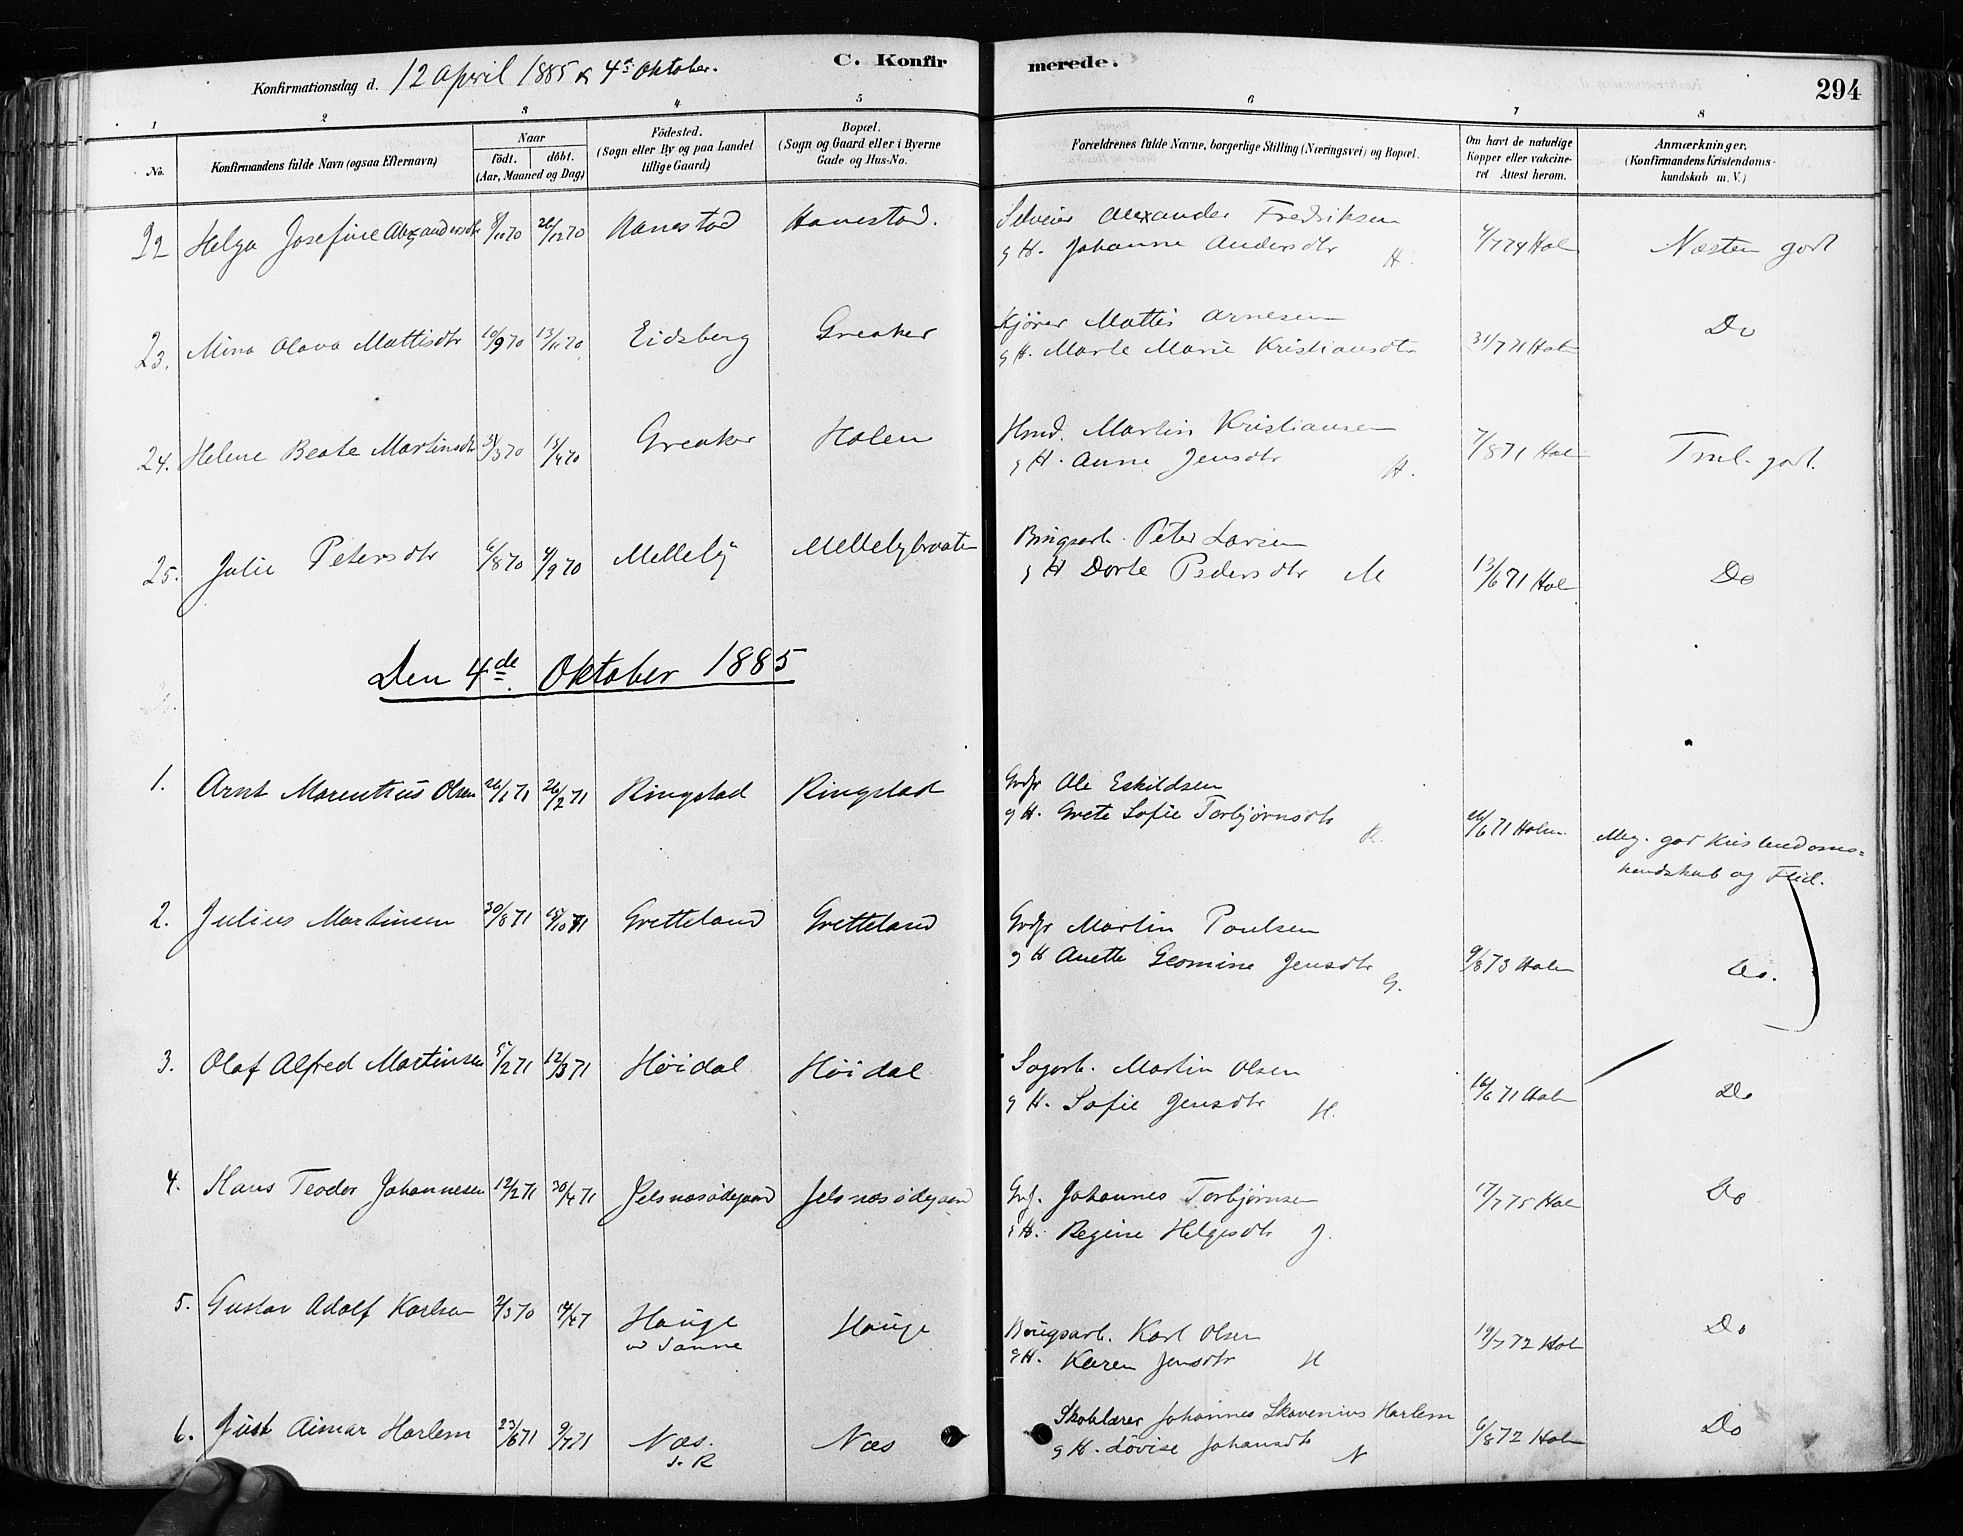 Konfirmationsdag d. 12 April 1885 & 4de Oktober.
C. Konfirmerede.
294
1 2 3 4 5 6 7 8
No.
Konfirmandens fulde Navn (ogsaa Efternavn)
Naar
födt. döbt.
(Aar, Maaned og Dag)
Födested.
(Sogn eller By og paa Landet
tillige Gaard)
Bopæl.
(Sogn og Gaard eller i Byerne
Gade og Hus-No.
Forældrenes fulde Navne, borgerlige Stilling (Næringsvei) og Bopæl.
Om havt de naturlige
Kopper eller vakcine-
ret Attest herom.
Anmærkninger.
(Konfirmandens Kristendoms-
kundskab m. V.)
22 Helga Josefine Alexandersdtr 8/10 70 26/12 70 Hanestad Hanestad. Selveier Alexander Fredriksen
g H. Johanne Andersdtr H. 4/7 74 Holm Næsten godt
23. Mina Olava Mattisdtr 10/9 70 13/11 70 Eidsberg Greaker Kjører Mattis Arnesen
g H. Marte Marie Kristiansdtr 31/7 71 Holm Do
24. Helene Beate Martinsdtr 31/3 70 15/4 70 Greaker Holen Hmd. Martin Kristiansen
g H. Anne Jensdtr H. 7/8 71 Hol Tml. godt.
25. Julie Petersdtr 6/8 70 4/9 70 Melleby Mellebybraaten Bingsarb. Peter Larsen
g H Dorte Pedersdtr M 13/6 71 Hol Do
Den 4de Oktober 1885
1. Arnt Marentius Olsen 26/1 71 26/2 71 Ringstad Ringstad Grdr Ole Eskildsen
g H. Grete Sofie Torbjørnsdtr R. 16/6 71 Holm. Meg. god Kristendoms=
kundskab og Flid.
2. Julius Martinsen 30/8 71 15/10 71 Gretteland Gretteland Grdr Martin Poulsen
g H Anette Geomine Jensdtr G. 9/8 73 Holm Do.
3. Olaf Alfred Martinsen 5/2 71 12/3 71 Høidal Høidal Sagarb. Martin Olsen
g H. Sofie Jensdtr H. 16/6 71 Hol Do
4. Hans Teodor Johannesen 12/2 71 30/4 71 Jelsnæsødegaard Jelsnæsødegaard Grf. Johannes Torbjørnsen
g H. Regine Helgesdtr J. 17/7 75 Hol Do
5. Gustav Adolf Karlsen 2/3 70 17/4 7 Hauge Hauge Bingsarb. Karl Olsen
v Sanne g H. Karen Jensdtr H 19/7 72 Hol Do
6. Just Aimar Harlem 23/6 71 9/7 71 Næs. Næs Skolelærer Johannes Skavenius Harlem
S. R g H. Lovise Johansdtr N 6/8 72 Hol Do